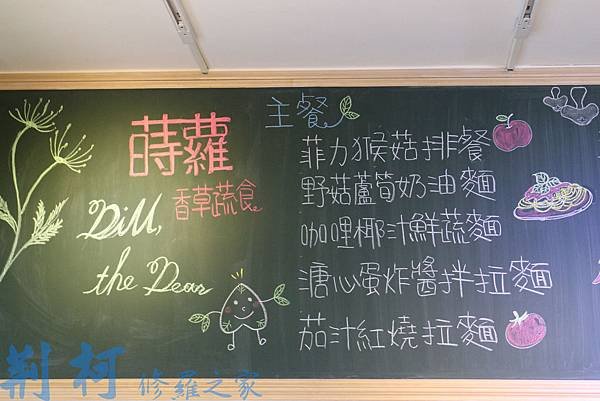 蒔蘿
香草蔬食
Dill,
the Dear
主餐
菲力猴菇排餐
野菇蘆筍奶油麵
咖哩椰汁鮮蔬麵
溏心蛋炸醬拌拉麵
茄汁紅燒拉麵
荊柯修羅之家